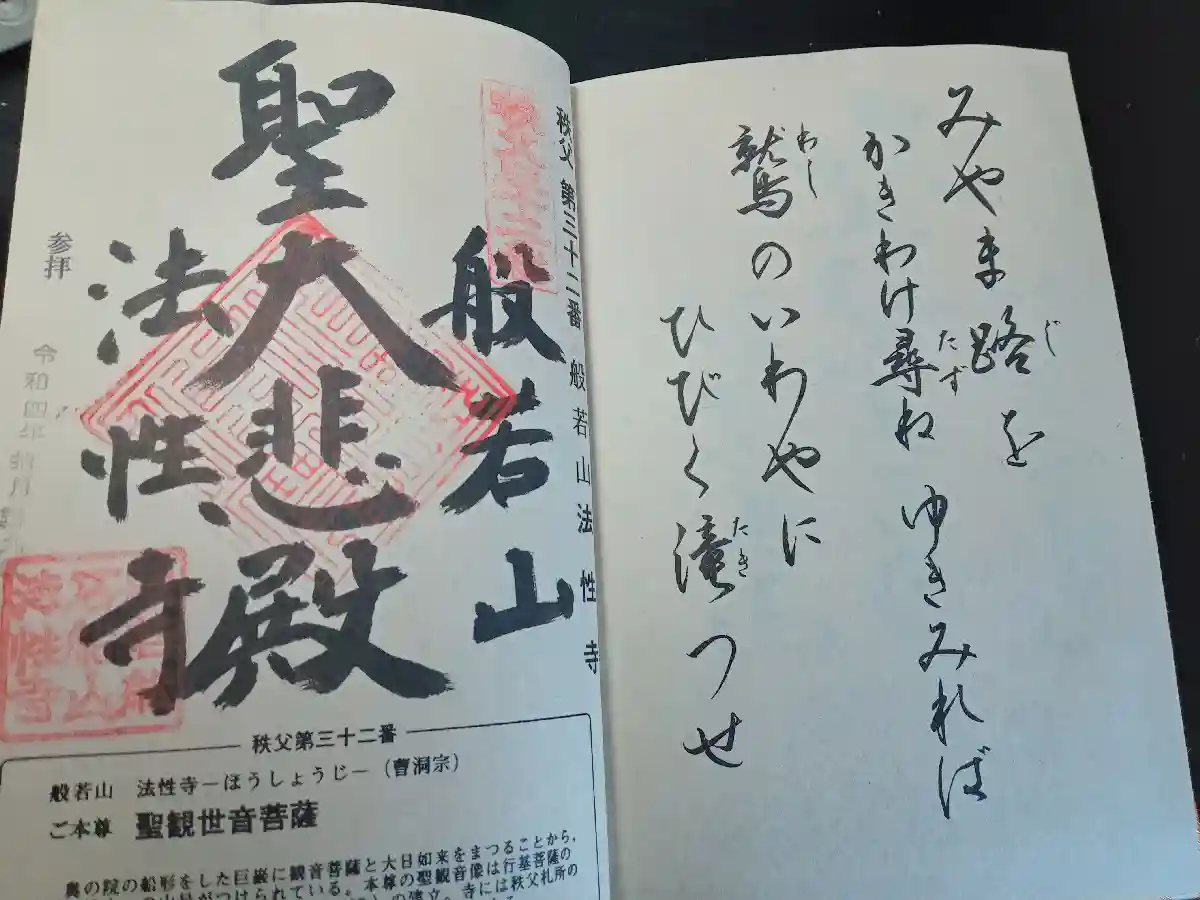 みやま路を
じ
かきわけ尋ね ゆきみれば
たず
鷲のいわやに
わし
ひびく滝つせ
たき
秩父第三十二番 般若山法性寺
般若山
聖
大悲殿
法性寺
参拝 令和四年
秩父第三十二番
般若山 法性寺－ほうしょうじ－（曹洞宗）
ご本尊 聖観世音菩薩
奥の院の船形をした巨巌に観音菩薩と大日如来をまつることから、
がつけられている。本尊の聖観音像は行基菩薩の
の建立。寺には秩父札所の